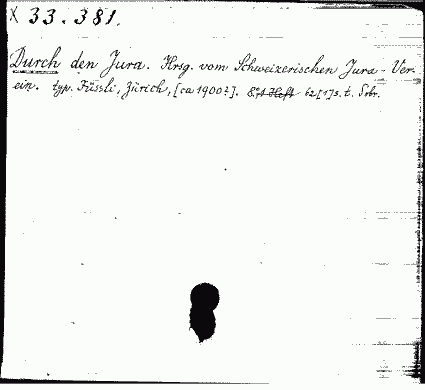 X 33.381.
Durch den Jura. Hrsg. vom Schweizerischen Jura-Ver-
ein. typ. Füssli, Zürich, [ca 1900?]. 62[1]s. t.